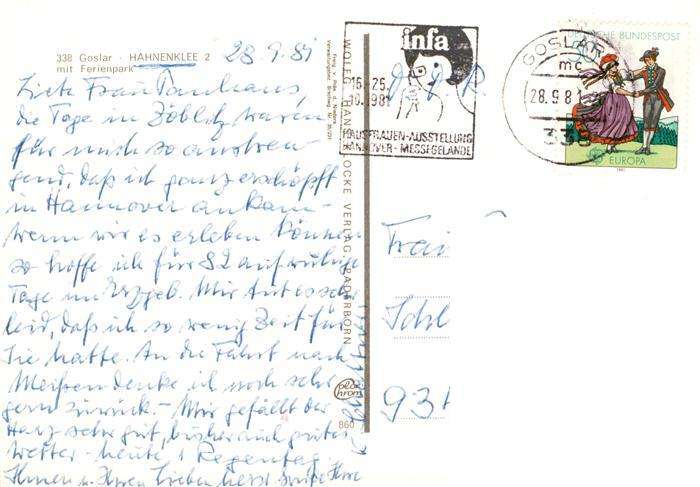 338 Goslar · HAHNENKLEE 2
mit Ferienpark
28.9.81
Liebe Frau Tauhaus,
die Tage in Zöblitz waren
für mich so anstren-
gend, daß ich ganz erschöpft
in Hannover ankam –
wenn wir es erleben können
so hoffe ich für 82 auf ruhige
Tage im Erzgeb. Mir tut es sehr
leid, daß ich so wenig Zeit für
Sie hatte. An die Fahrt nach
Meißen denke ich noch sehr
gern zurück. – Mir gefällt der
Harz sehr gut, bisher auch gutes
Wetter – heute 1 Regentag.
Ihnen u. Ihren Lieben herzl. Grüße Ihre
WOLFG. HANS KLOCKE VERLAG PADERBORN
860
infa
16.-25.
10.1981
HAUSFRAUEN-AUSSTELLUNG
HANNOVER - MESSEGELÄNDE
D.D.R.
GOSLAR
mc
28.9.8
338
DEUTSCHE BUNDESPOST
EUROPA
1981
Frau
Schl
93